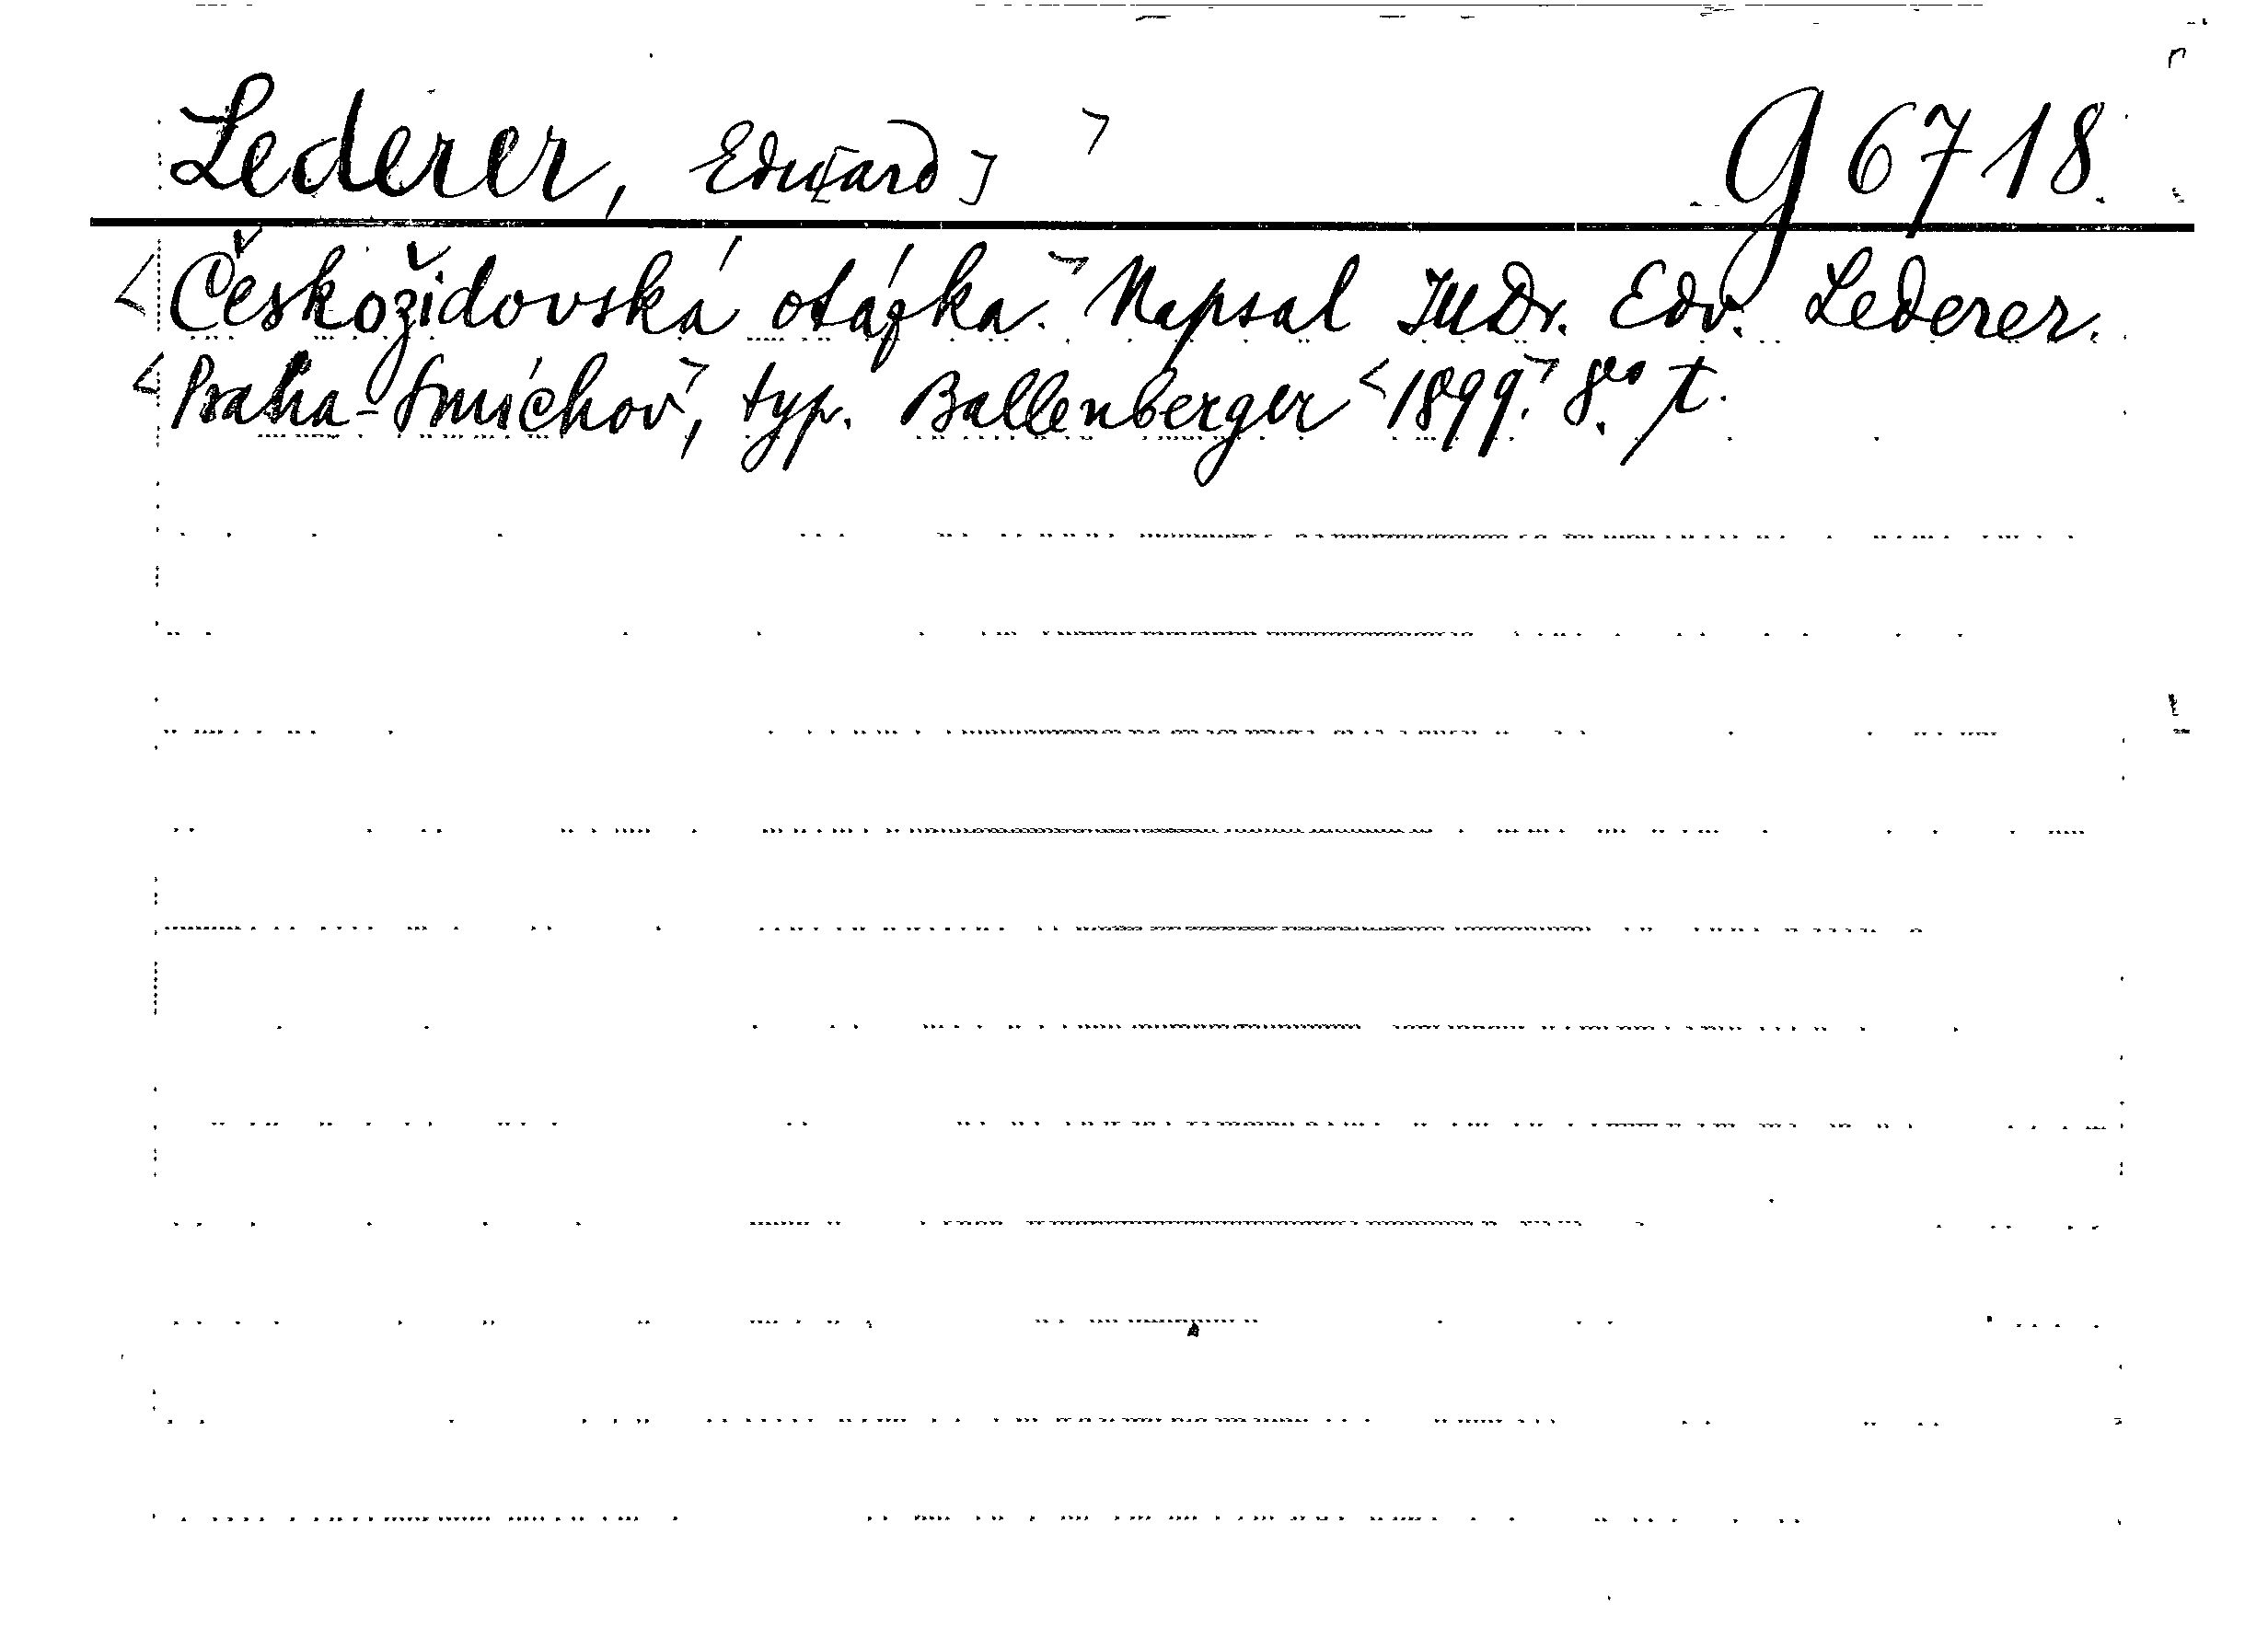 Lederer, Edu[ard] G 6718
Českožidovská otázka. Napsal JUDr. Edv. Lederer.
Praha-Smíchov, typ. Ballenberger 1899. 8°